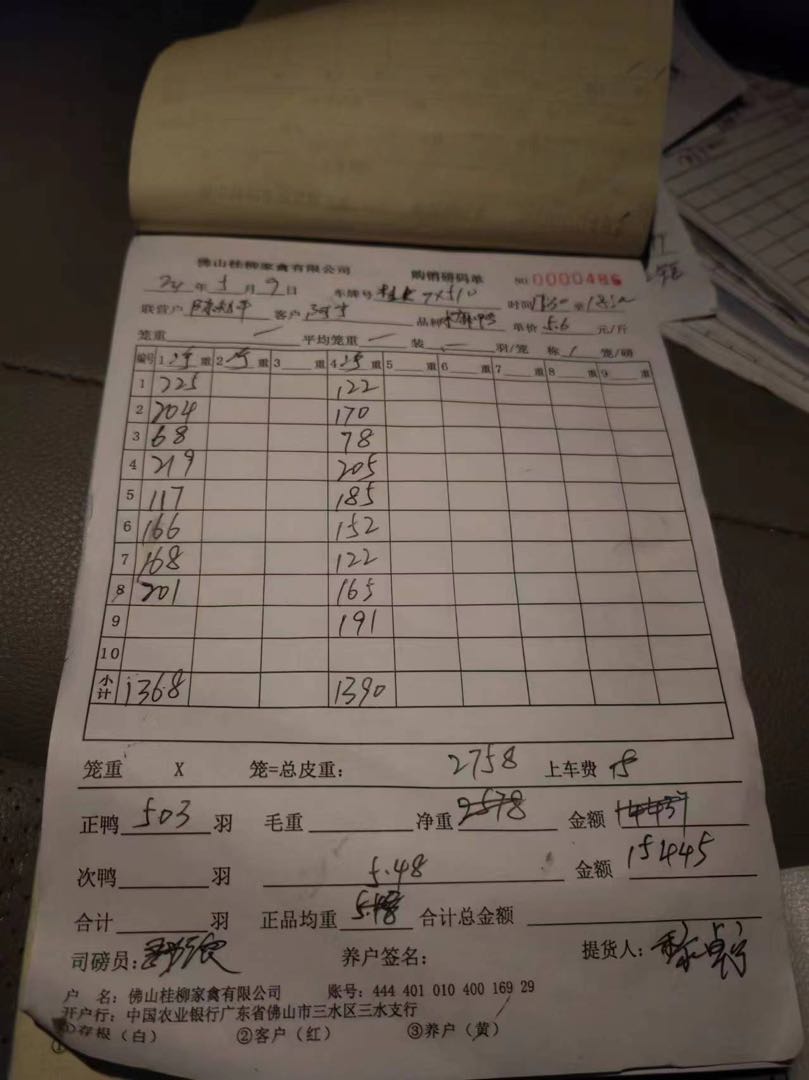 佛山桂柳家禽有限公司 购销磅码单 NO 0000486
24 年 5 月 9 日 车牌号 7X510 时间 至
联营户 客户 品种 单价 5.6 元/斤
笼重 一 平均笼重 一 装 一 羽/笼 称 1 笼/磅
编号 1 净 重 2 净 重 3 重 4 净 重 5 重 6 重 7 重 8 重 9 重
1 225 122
2 204 170
3 68 78
4 219 205
5 117 185
6 166 152
7 168 122
8 201 165
9 191
10
小计 1368 1390
笼重 X 笼=总皮重: 2758 上车费
正鸭 503 羽 毛重 净重 2578 金额 14437
次鸭 羽 5.48 金额 15445
合计 羽 正品均重 合计总金额
司磅员: 养户签名: 提货人:
户 名: 佛山桂柳家禽有限公司 账号: 444 401 010 400 169 29
开户行: 中国农业银行广东省佛山市三水区三水支行
①存根(白) ②客户(红) ③养户(黄)